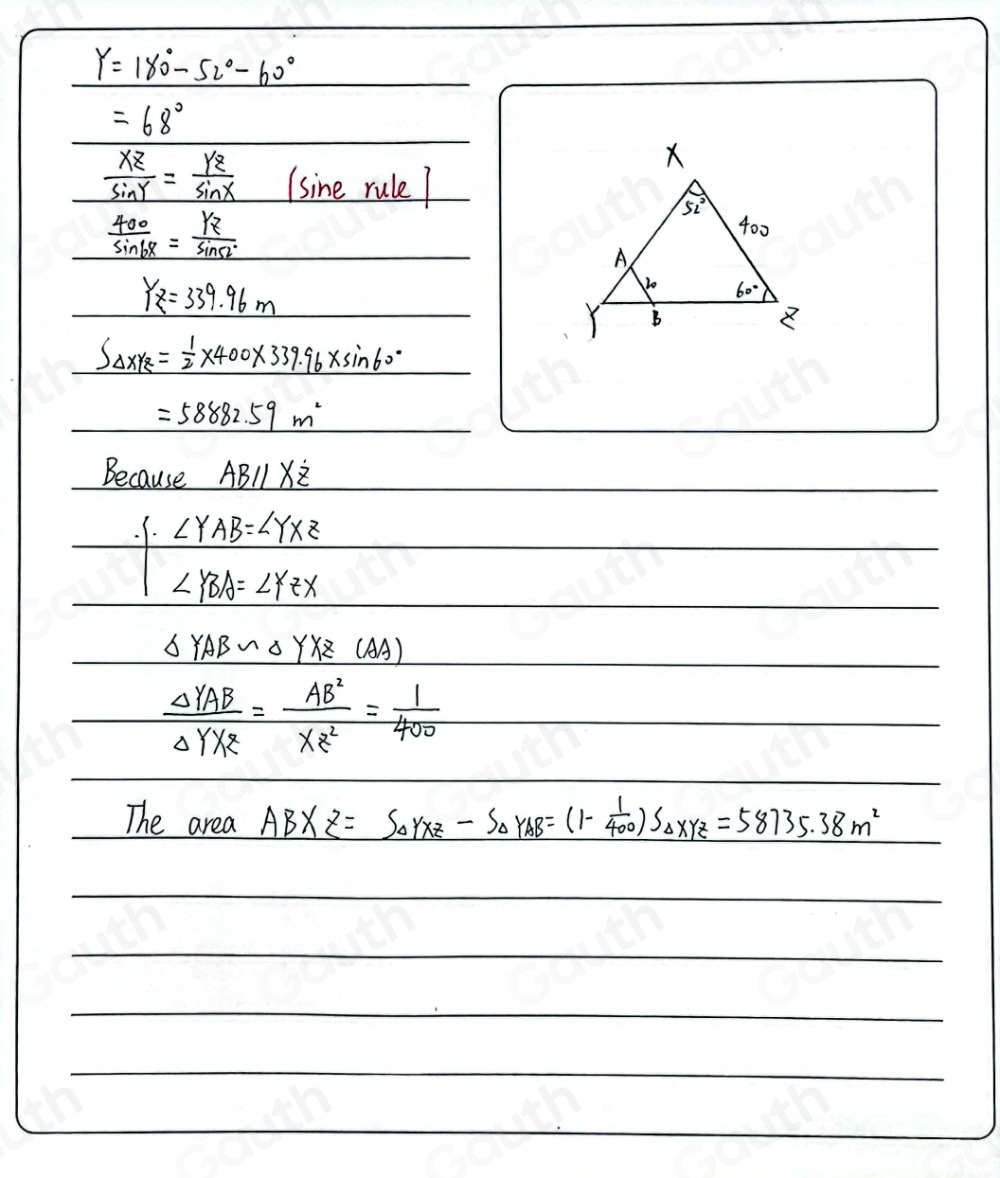 Y = 180° - 52° - 60°
= 68°
XZ/sinY = YZ/sinX [sine rule]
400/sin68 = YZ/sin52°
YZ = 339.96 m
S△XYZ = 1/2 × 400 × 339.96 × sin60°
= 58882.59 m²
X
52°
400
A
20
60°
Y
B
Z
Because AB // XZ
∴ ∠YAB = ∠YXZ
∠YBA = ∠YZX
△YAB ∽ △YXZ (AA)
△YAB/△YXZ = AB²/XZ² = 1/400
The area ABXZ = S△YXZ - S△YAB = (1 - 1/400) S△XYZ = 58735.38 m²
Gauth